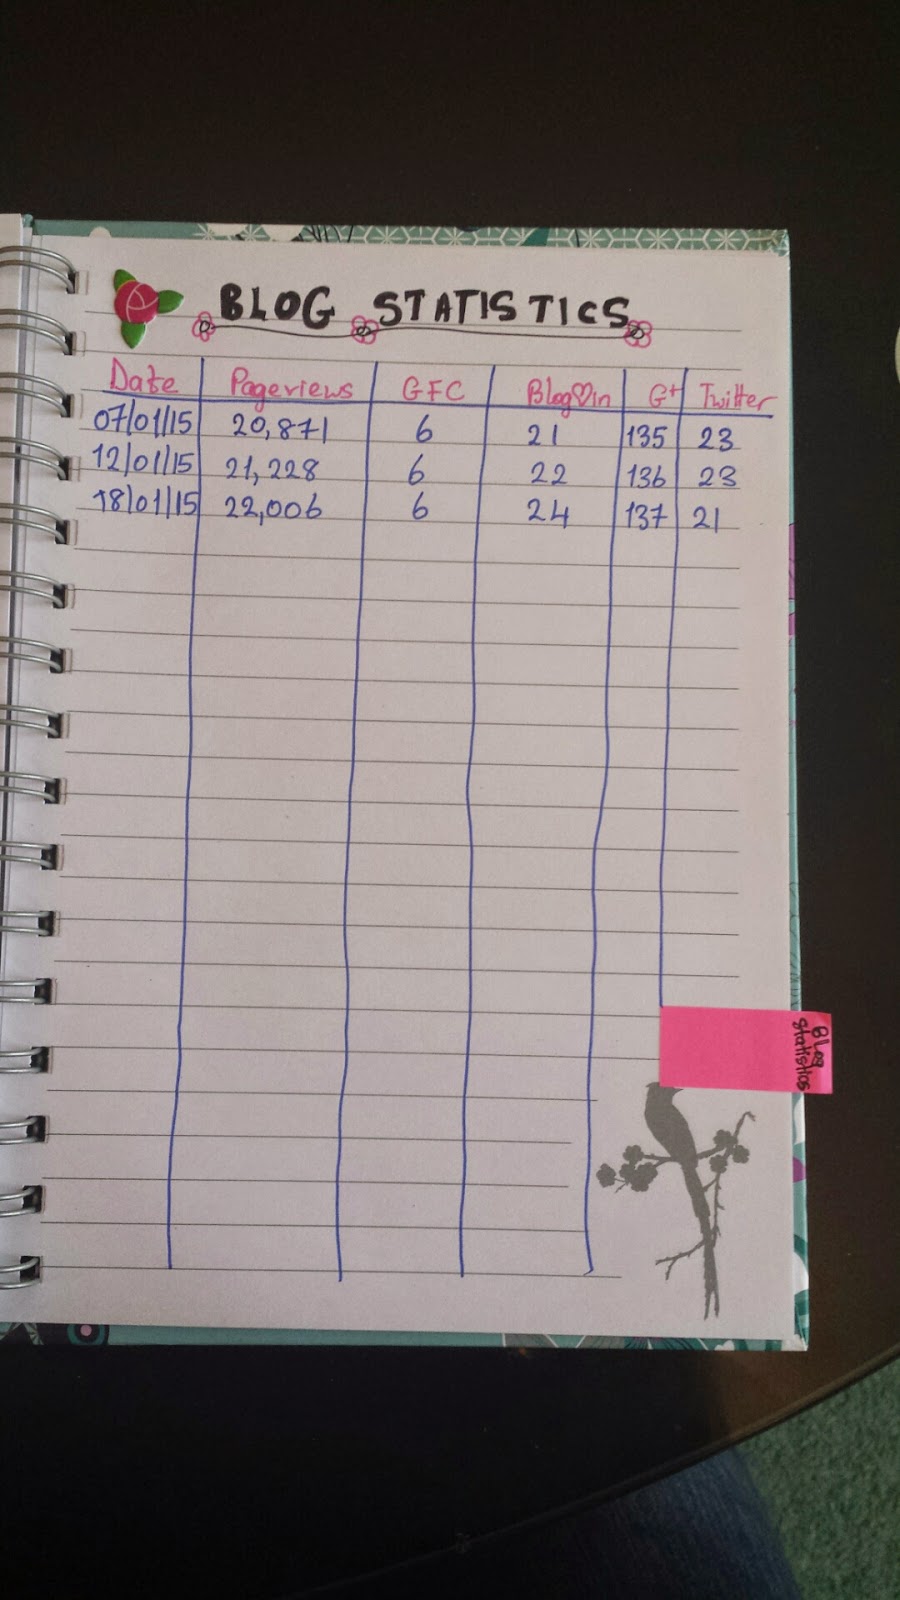 BLOG STATISTICS
Date Pageviews GFC Blog♡in G+ Twitter
07/01/15 20,871 6 21 135 23
12/01/15 21,228 6 22 136 23
18/01/15 22,006 6 24 137 21
Blog
statistics